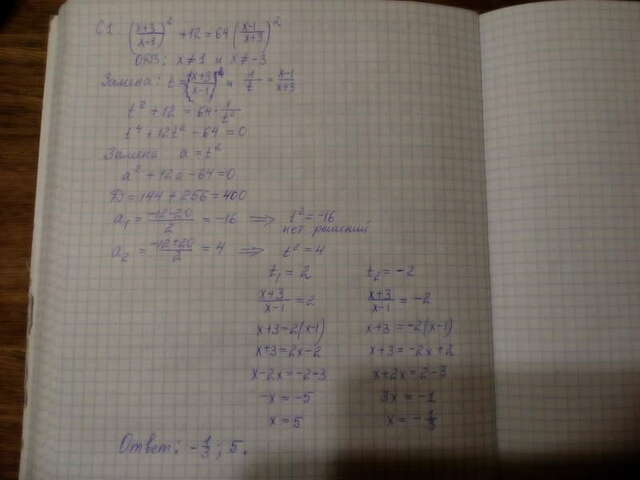 C1. ((x+3)/(x-1))² + 12 = 64 ((x-1)/(x+3))²
ОДЗ: x ≠ 1 и x ≠ -3
Замена: t = (x+3)/(x-1) и 1/t = (x-1)/(x+3)
t² + 12 = 64 · 1/t²
t⁴ + 12t² - 64 = 0
Замена a = t²
a² + 12a - 64 = 0
D = 144 + 256 = 400
a₁ = (-12-20)/2 = -16 ⟹ t² = -16
нет решений
a₂ = (-12+20)/2 = 4 ⟹ t² = 4
t₁ = 2 t₂ = -2
(x+3)/(x-1) = 2 (x+3)/(x-1) = -2
x+3 = 2(x-1) x+3 = -2(x-1)
x+3 = 2x-2 x+3 = -2x+2
x-2x = -2-3 x+2x = 2-3
-x = -5 3x = -1
x = 5 x = -1/3
Ответ: -1/3; 5.